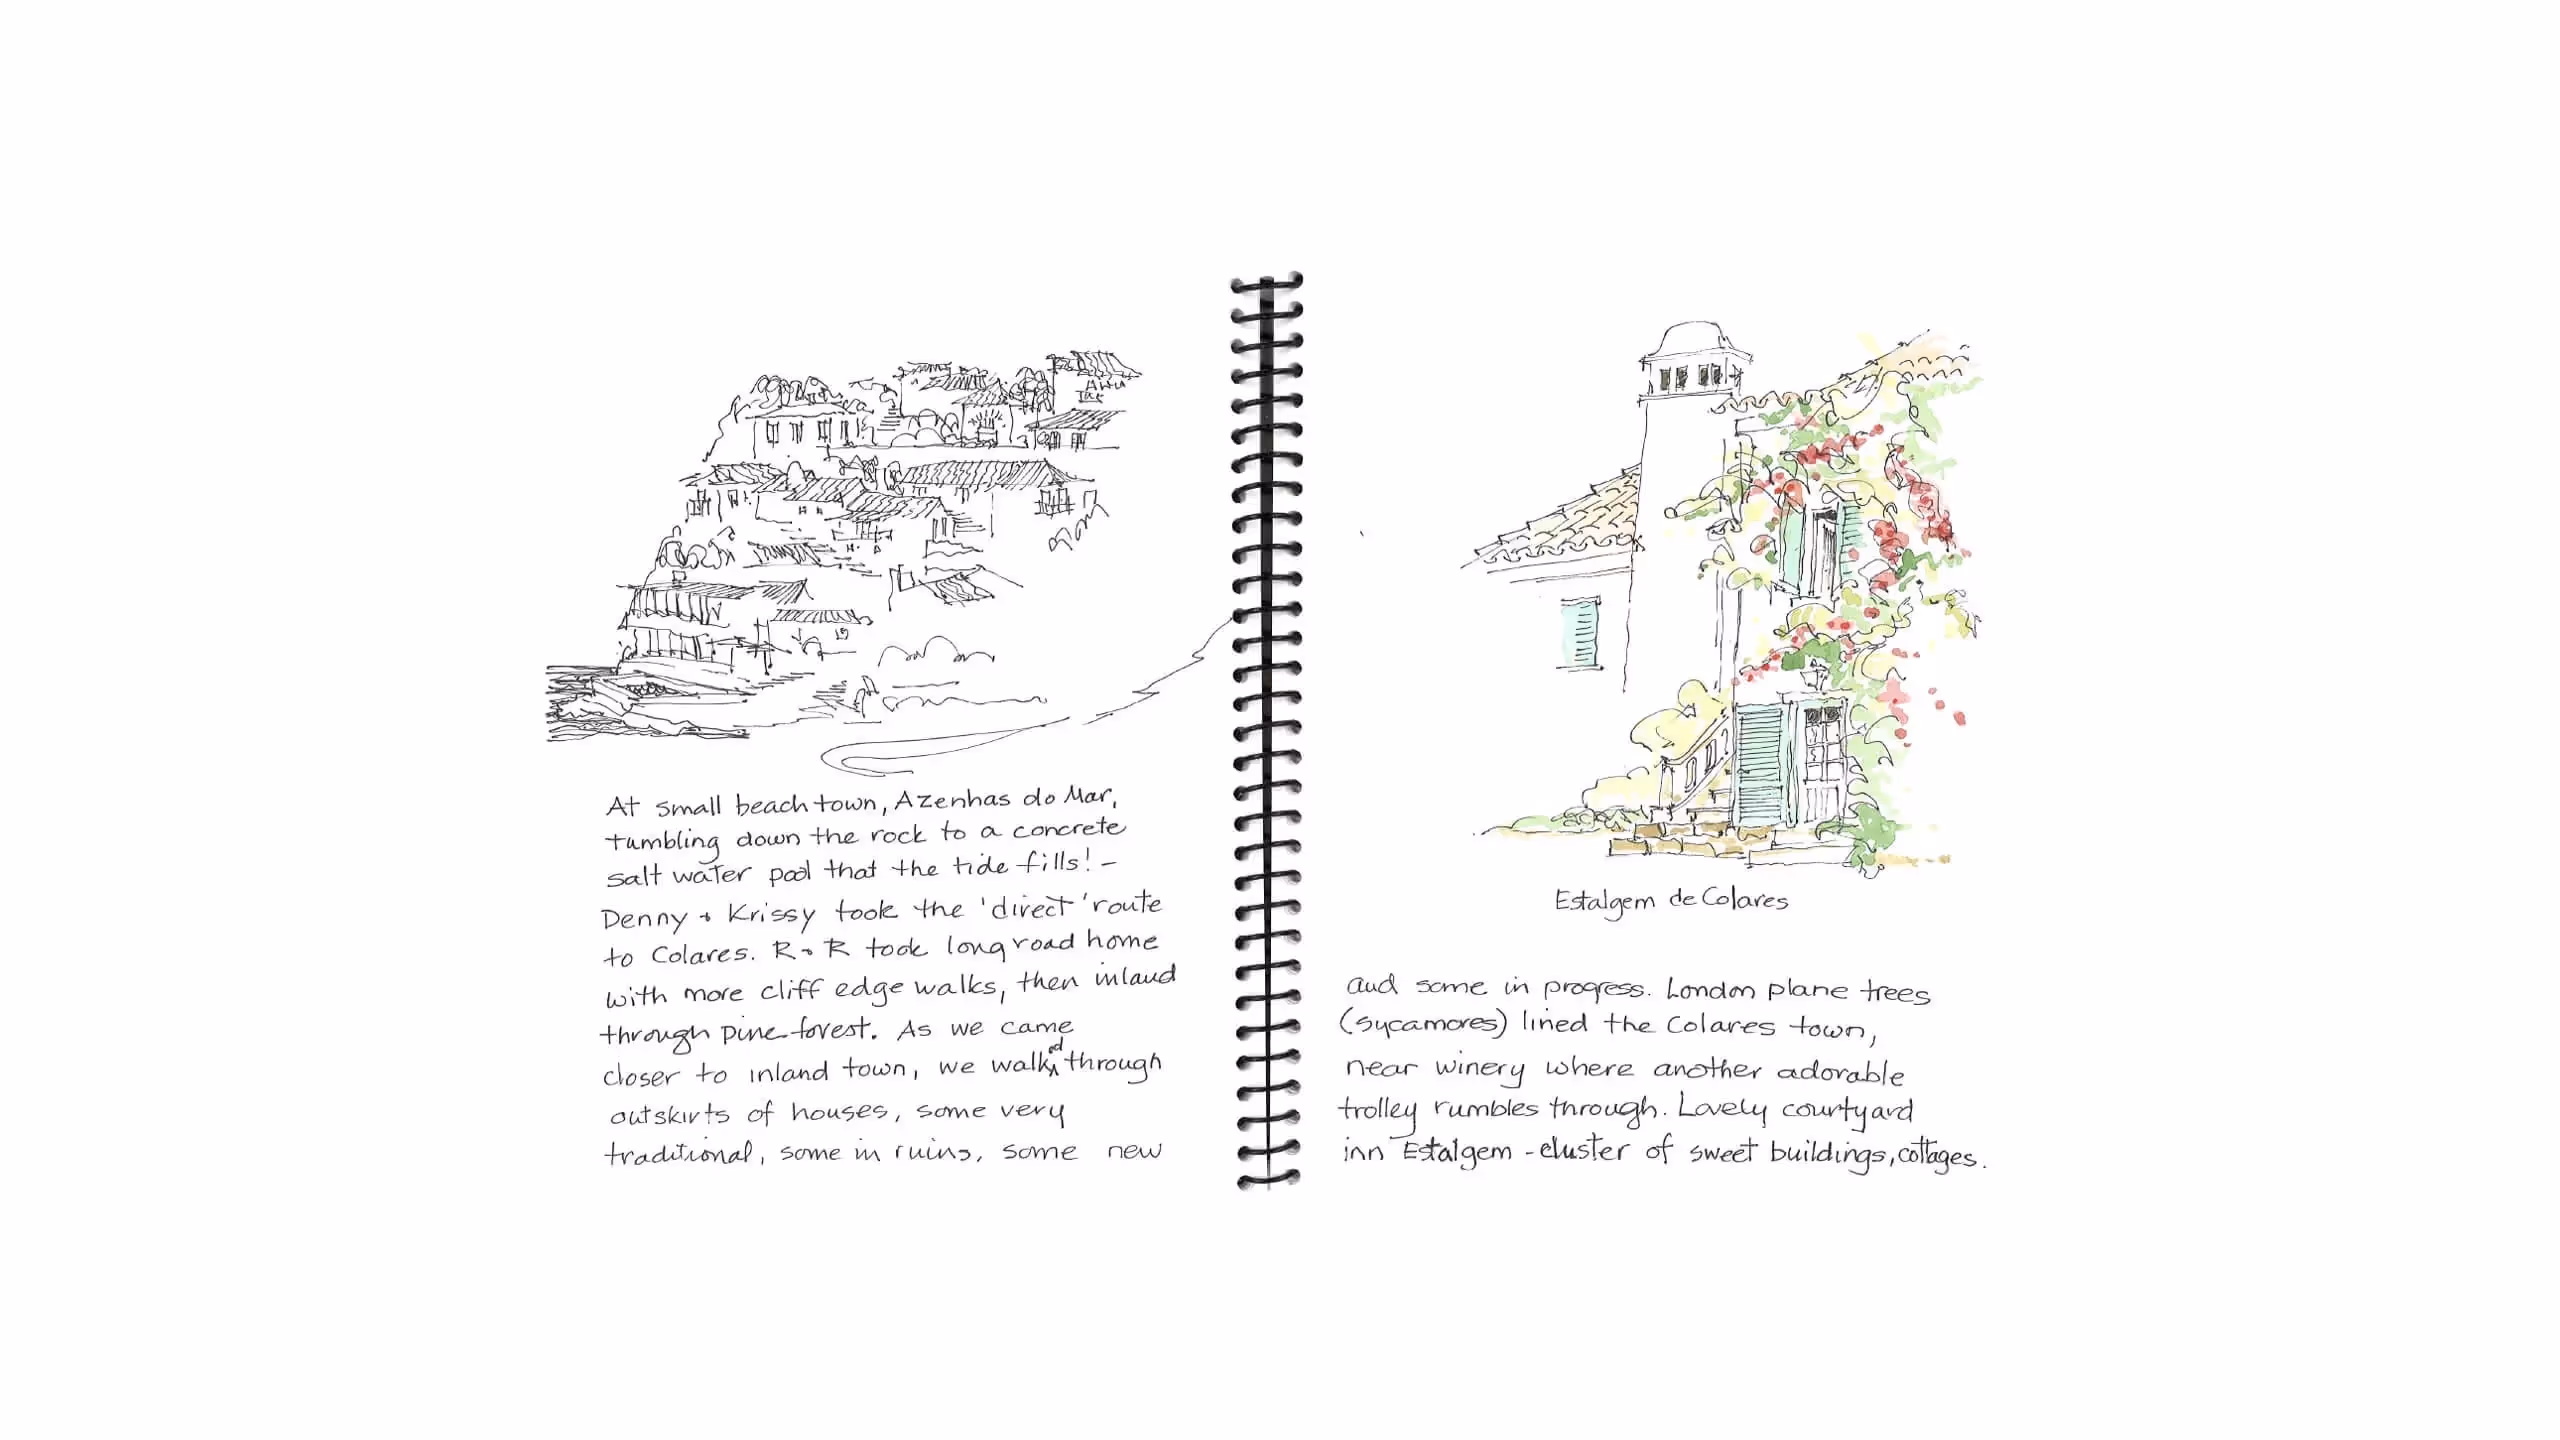 At small beach town, Azenhas do Mar,
tumbling down the rock to a concrete
salt water pool that the tide fills! -
Denny + Krissy took the 'direct' route
to Colares. R + R took long road home
with more cliff edge walks, then inland
through pine forest. As we came
closer to inland town, we walked through
outskirts of houses, some very
traditional, some in ruins, some new
Estalgem de Colares
and some in progress. London plane trees
(sycamores) lined the Colares town,
near winery where another adorable
trolley rumbles through. Lovely courtyard
inn Estalgem - cluster of sweet buildings, cottages.